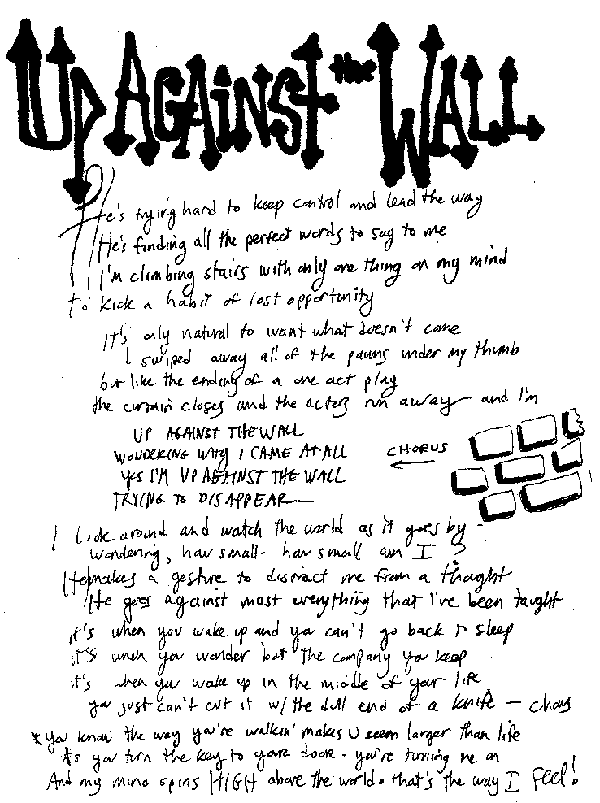 UP AGAINST the WALL
He's trying hard to keep control and lead the way
He's finding all the perfect words to say to me
I'm climbing stairs with only one thing on my mind
to kick a habit of lost opportunity
It's only natural to want what doesn't come
I swiped away all of the pawns under my thumb
but like the ending of a one act play
the curtain closes and the actors run away and I'm
UP AGAINST THE WALL
WONDERING WHY I CAME AT ALL
YES I'M UP AGAINST THE WALL
TRYING TO DISAPPEAR
CHORUS
I look around and watch the world as it goes by -
wondering, how small - how small am I ?
He makes a gesture to distract me from a thought
He goes against most everything that I've been taught
it's when you wake up and you can't go back to sleep
it's when you wonder bout the company you keep
it's when you wake up in the middle of your life
you just can't cut it w/ the dull end of a knife - chorus
* you know the way you're walkin' makes U seem larger than life
As you turn the key to your door - you're turning me on
And my mind spins HIGH above the world - that's the way I feel!